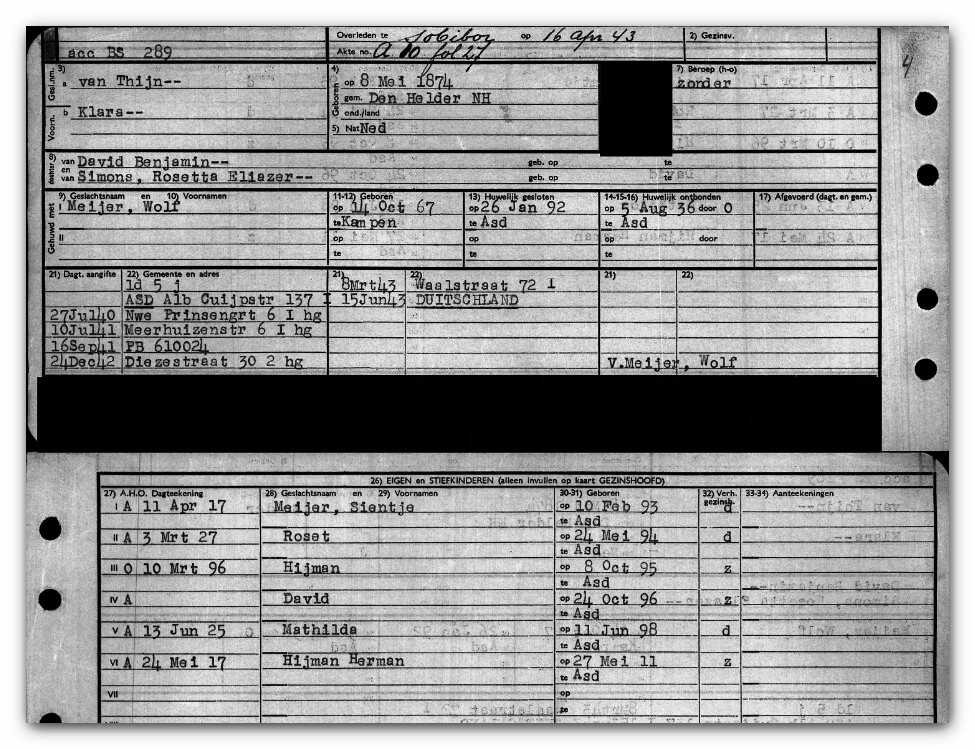 Overleden te Sobibor op 16 apr 43 2) Gezinsv.
acc BS 289 Akte no. A fol 27
4
3) 4) 7) Beroep (h-o)
Gesl.nm. a van Thijn-- Geboren op 8 Mei 1874 zorder
gem. Den Helder NH
Voorn. b Klara-- ond./land
5) Nat Ned
8) van David Benjamin-- geb. op te
en
van Simons, Rosetta Eliazer-- geb. op te
Gehuwd met 9) Geslachtsnaam en 10) Voornamen 11-12) Geboren 13) Huwelijk gesloten 14-15-16) Huwelijk ontbonden 17) Afgevoerd (dagt. en gem.)
I Meijer, Wolf op 14 Oct 67 op 26 Jan 92 op 5 Aug 36 door O
te Kampen te Asd te Asd
II op op op door
te te te
21) Dagt. aangifte 22) Gemeente en adres 21) 22) 21) 22)
ld 5 j 8Mrt43 Waalstraat 72 I
ASD Alb Cuijpstr 137 I 15Jun43 DUITSCHLAND
27Jul40 Nwe Prinsengrt 6 I hg
10Jul41 Meerhuizenstr 6 I hg
16Sep41 PB 610024
24Dec42 Diezestraat 30 2 hg V.Meijer, Wolf
26) EIGEN en STIEFKINDEREN (alleen invullen op kaart GEZINSHOOFD)
27) A.H.O. Dagteekening 28) Geslachtsnaam en 29) Voornamen 30-31) Geboren 32) Verh. gezinsh. 33-34) Aanteekeningen
I A 11 Apr 17 Meijer, Sientje op 10 Feb 93 d
te Asd
II A 3 Mrt 27 Roset op 24 Mei 94 d
te Asd
III O 10 Mrt 96 Hijman op 8 Oct 95 z
te Asd
IV A David op 24 Oct 96 z
te Asd
V A 13 Jun 25 Mathilda op 11 Jun 98 d
te Asd
VI A 24 Mei 17 Hijman Herman op 27 Mei 11 z
te Asd
VII op
te